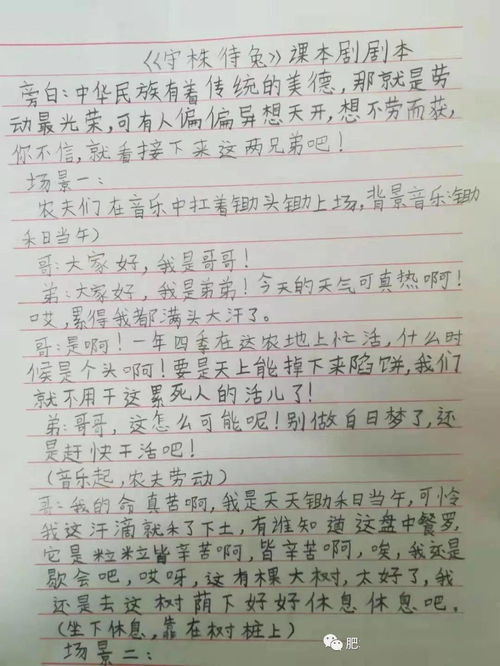 《守株待兔》课本剧剧本
旁白:中华民族有着传统的美德，那就是劳
动最光荣，可有人偏偏异想天开，想不劳而获，
你不信，就看接下来这两兄弟吧！
场景一：
农夫们在音乐中扛着锄头锄上场，背景音乐:锄
禾日当午）
哥:大家好，我是哥哥！
弟:大家好，我是弟弟！今天的天气可真热啊！
哎，累得我都满头大汗了。
哥:是啊！一年四季在这农地上忙活，什么时
候是个头啊！要是天上能掉下来陷饼，我们
就不用干这累死人的活儿了！
弟:哥哥，这怎么可能呢！别做白日梦了，还
是赶快干活吧！
（音乐起，农夫劳动）
哥:我的命真苦啊，我是天天锄禾日当午，可怜
我这汗滴就禾了下土，有谁知道这盘中餐罗，
它是粒粒皆辛苦啊，皆辛苦啊，唉，我还是
歇会吧，哎呀，这有棵大树，太好了，我
还是去这树荫下好好休息休息吧。
（坐下休息，靠在树桩上）
场景二：
肥